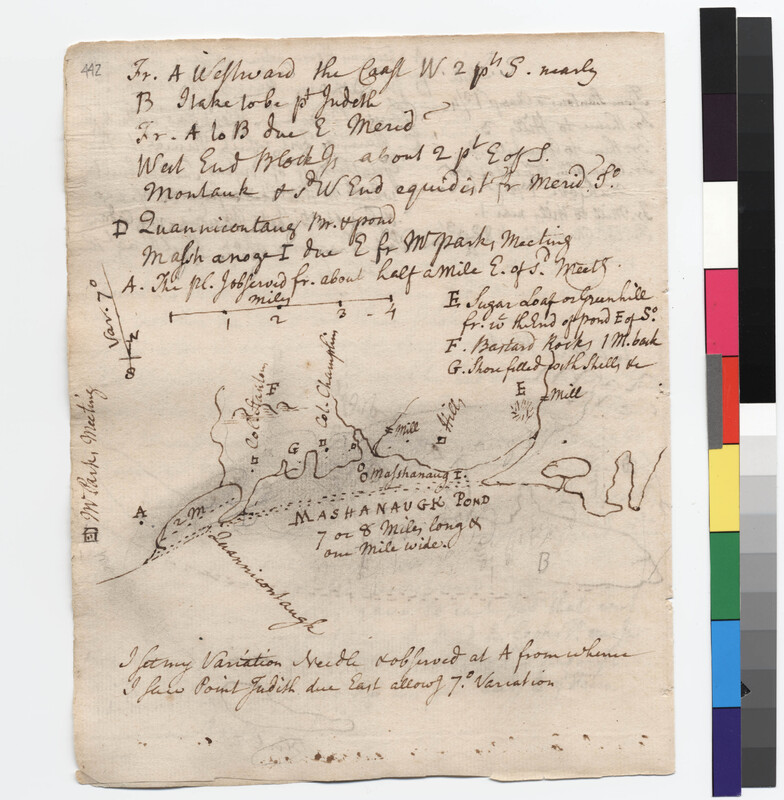 442
Fr. A Westward the Coast W. 2 pts S. nearly
B I take to be pt Judith
Fr. A to B due E Merid
West End Block Is about 2 pt E of S.
Montauk & sd W End equidist fr Merid. So
D Quannicontaug Br. & pond
Mashanoge I due E fr Mr Parks Meeting
A. The pl. I observed fr. about half a mile E. of sd Meetg.
miles
1 2 3 4
E, Sugar Loaf or Greenhill
fr. wc th End of pond E of So
F. Bastard Rocks 1 M. back
G. Shore filled with Shells &c
Var. 7°
Mr Parks Meeting
Col. Stanton
F
Col. Champlin
G
Mill
Hills
E
Mill
A
2 M
Masshanaug I.
MASHANAUGK POND
7 or 8 Miles long &
one Mile wide.
Quannicontaugh
B
I set my Variation Needle & observed at A from whence
I saw Point Judith due East allowg 7.° Variation